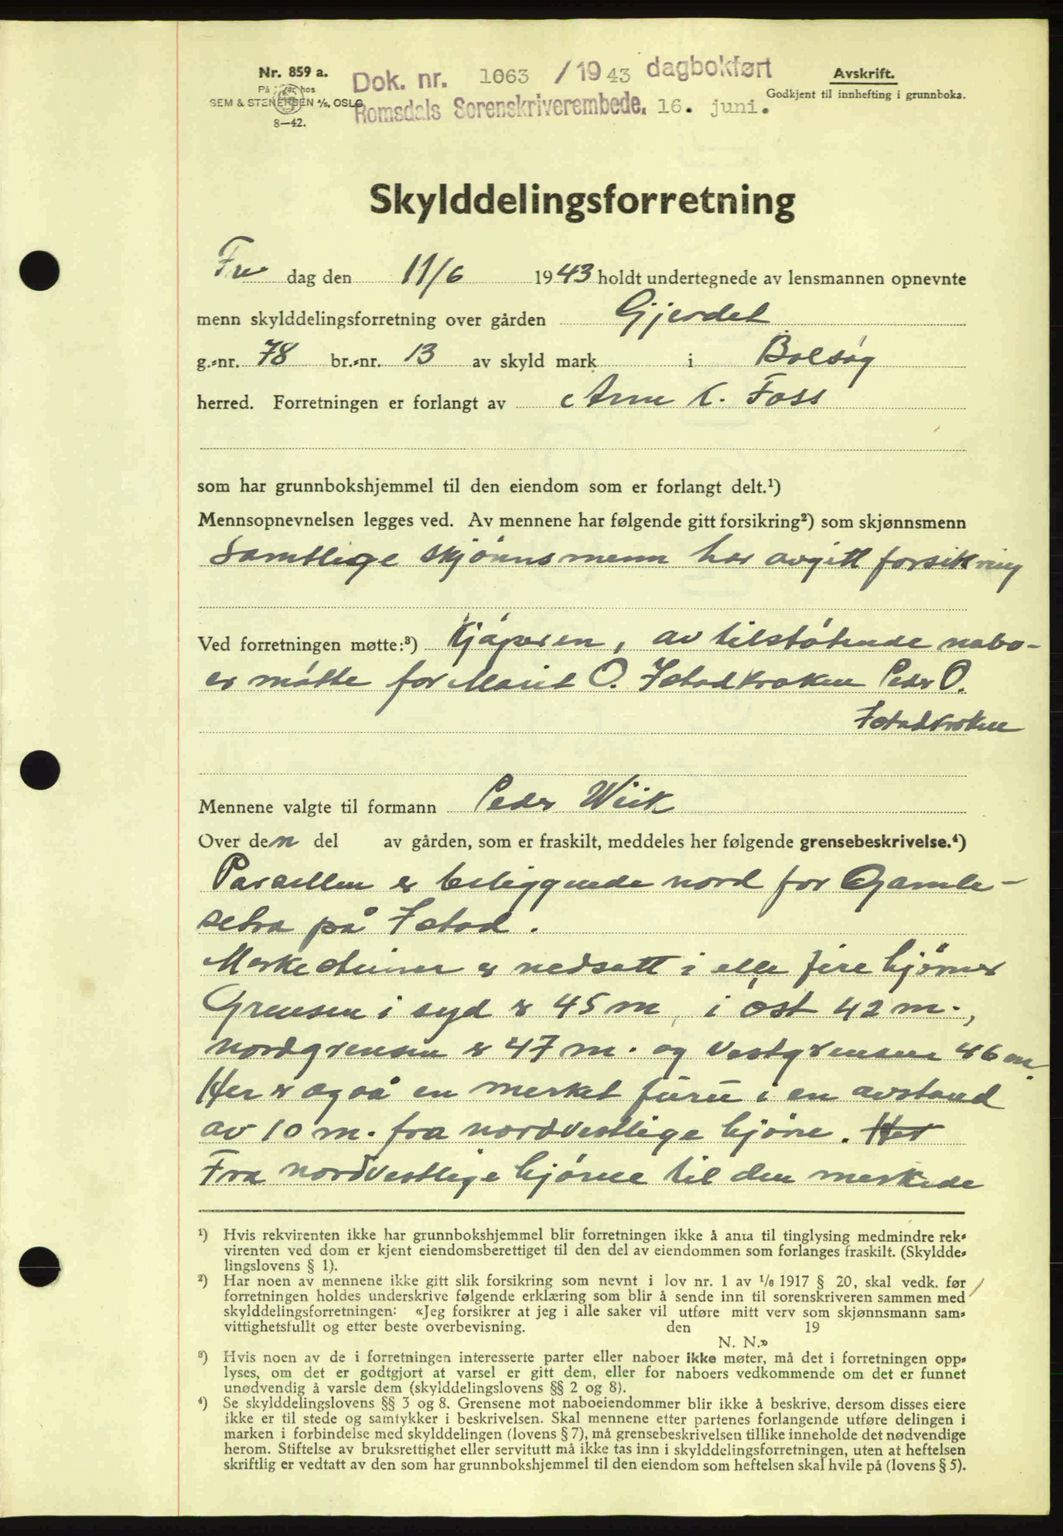 Nr. 859 a.
SEM & STENERSEN A/S, OSLO
8—42.
Dok. nr. 1063 /1943 dagbokført
Romsdals Sorenskriverembede. 16. juni.
Avskrift.
Godkjent til innhefting i grunnboka.
Skylddelingsforretning
Fre dag den 11/6 1943 holdt undertegnede av lensmannen opnevnte
menn skylddelingsforretning over gården Gjerdet
g.-nr. 78 br.-nr. 13 av skyld mark i Bolsøy
herred. Forretningen er forlangt av Arne K. Foss
som har grunnbokshjemmel til den eiendom som er forlangt delt.¹)
Mennsopnevnelsen legges ved. Av mennene har følgende gitt forsikring²) som skjønnsmenn
Samtlige skjønnsmenn har avgitt forsikring
Ved forretningen møtte:³) Kjøperen, av tilstøtende nabo-
er møtte for Marit O. Istadkroken Peder O.
Istadkroken
Mennene valgte til formann Peder Wiik
Over den del av gården, som er fraskilt, meddeles her følgende grensebeskrivelse.⁴)
Parsellen er beliggende nord for Gamle-
setra på Istad.
Merkesteiner er nedsatt i alle fire hjørner
Grensen i syd er 45 m, i øst 42 m.,
nordgrensen er 47 m. og vestgrensen 46 m.
Her er også en merket furu i en avstand
av 10 m. fra nordvestlige hjørne. Her
Fra nordvestlige hjørne til den merkede
¹) Hvis rekvirenten ikke har grunnbokshjemmel blir forretningen ikke å anta til tinglysing medmindre rek-
virenten ved dom er kjent eiendomsberettiget til den del av eiendommen som forlanges fraskilt. (Skyldde-
lingslovens § 1).
²) Har noen av mennene ikke gitt slik forsikring som nevnt i lov nr. 1 av 1/6 1917 § 20, skal vedk. før
forretningen holdes underskrive følgende erklæring som blir å sende inn til sorenskriveren sammen med
skylddelingsforretningen: «Jeg forsikrer at jeg i alle saker vil utføre mitt verv som skjønnsmann sam-
vittighetsfullt og etter beste overbevisning. den 19
N. N.»
³) Hvis noen av de i forretningen interesserte parter eller naboer ikke møter, må det i forretningen opp-
lyses, om det er godtgjort at varsel er gitt dem, eller for naboers vedkommende om det er funnet
unødvendig å varsle dem (skylddelingslovens §§ 2 og 8).
⁴) Se skylddelingslovens §§ 3 og 8. Grensene mot naboeiendommer blir ikke å beskrive, dersom disses eiere
ikke er til stede og samtykker i beskrivelsen. Skal mennene etter partenes forlangende utføre delingen i
marken i forbindelse med skylddelingen (lovens § 7), må grensebeskrivelsen tillike inneholde det nødvendige
herom. Stiftelse av bruksrettighet eller servitutt må ikke tas inn i skylddelingsforretningen, uten at heftelsen
skriftlig er vedtatt av den som har grunnbokshjemmel til den eiendom som heftelsen skal hvile på (lovens § 5).